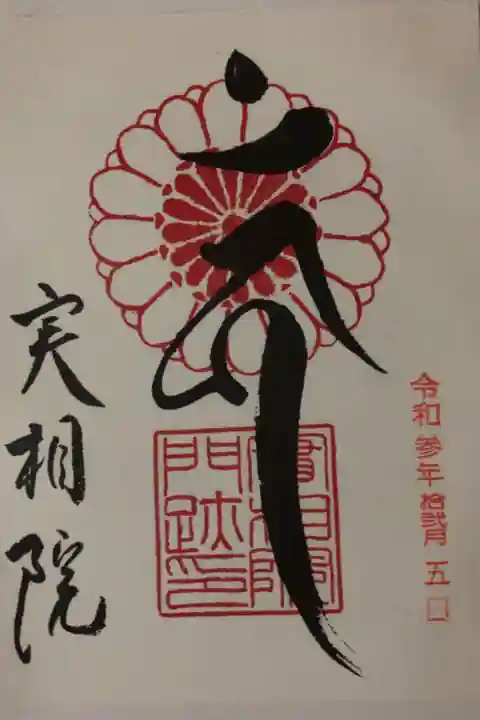 令和参年拾弐月五
實相院
門跡印
実相院